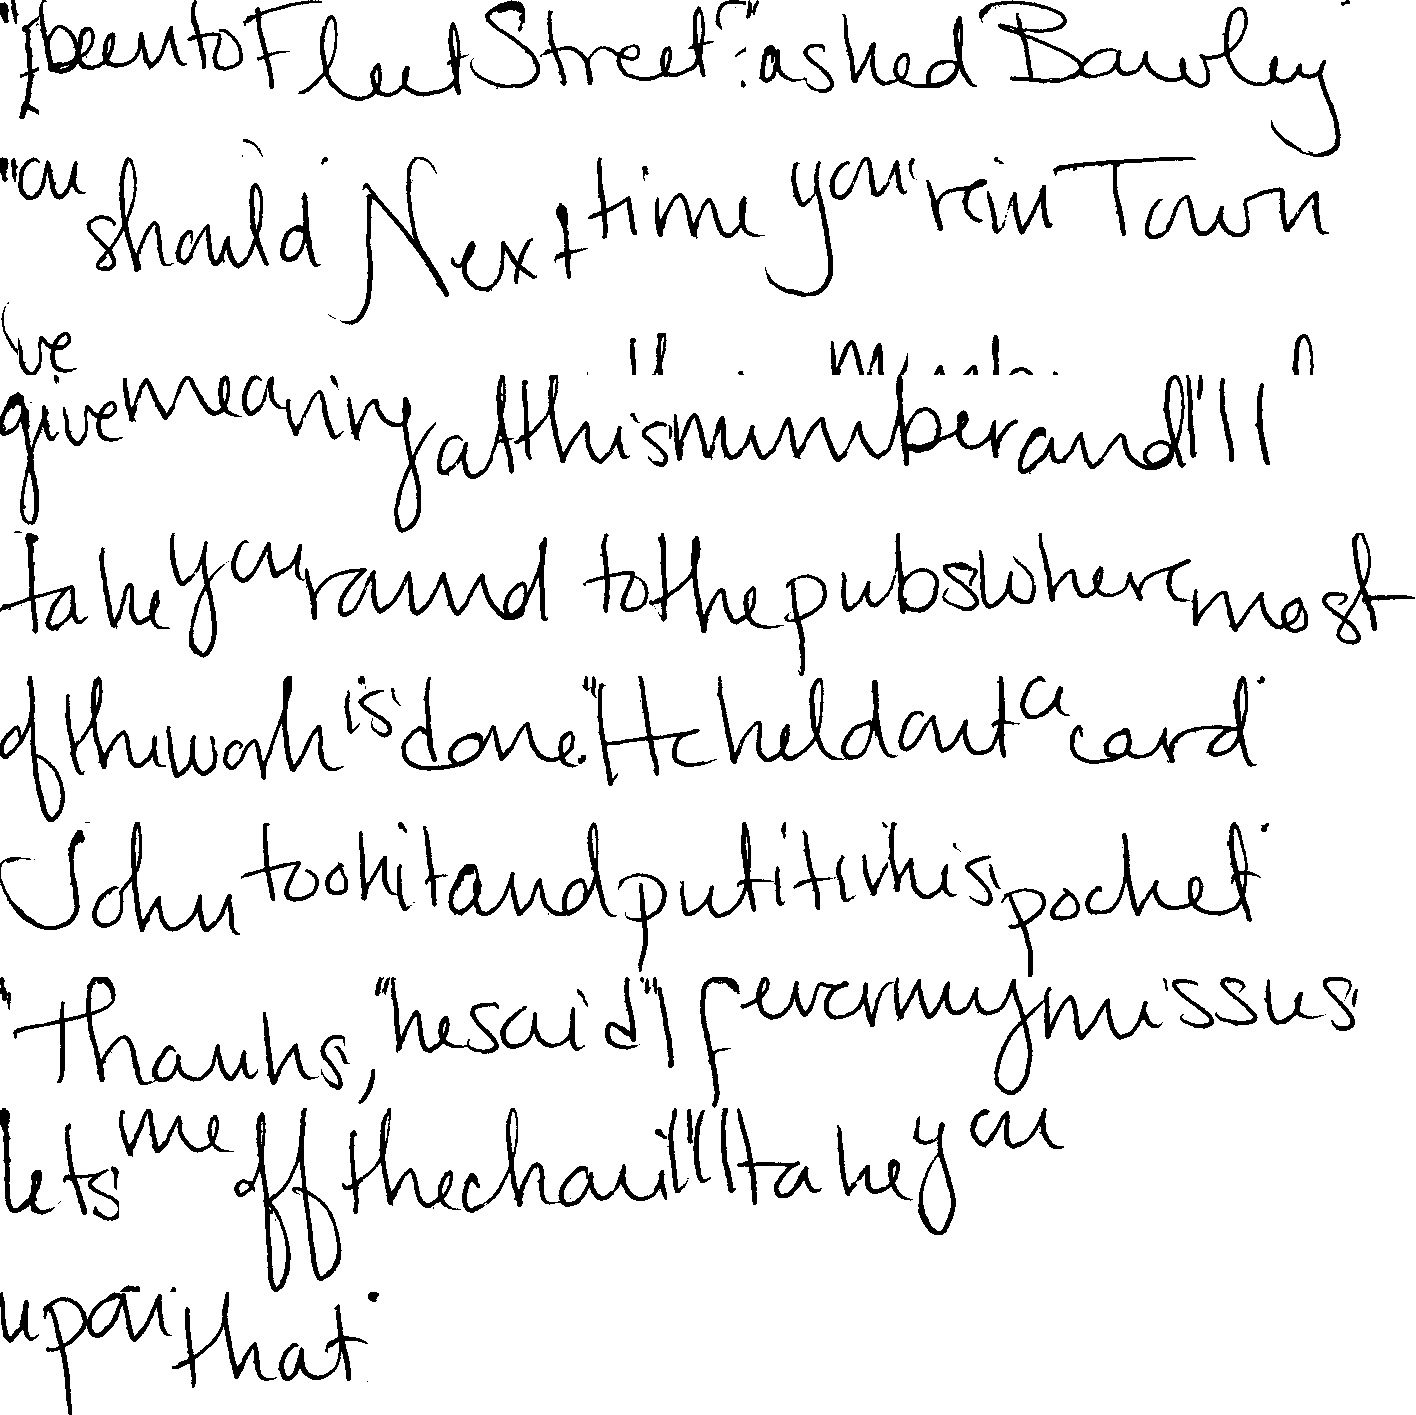 "I been to Fleet Street?" asked Bawley
"ou should Next time you're in Town
've
give me a ring at this number and I'll
take you round to the pubs where most
of the work is done." He held out a card
John took it and put it in his pocket
"Thanks," he said "If ever my missus
lets me off the chain I'll take you
up on that.